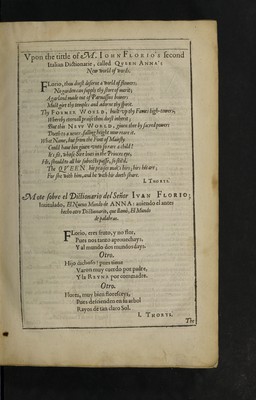 Vpon the tittle of M. IOHN FLORIO's second
Italian Dictionarie, called QVEEN ANNA's
New world of words.
FLorio, thou doest deserue a world of flowers:
No garden can supply thy store of merit;
A garland made out of Parnassus bowers
Must giet thy temples and adorne thy spirit.
Thy FORMER WORLD, built vp thy Fames high-towers,
Whereby eternall praise thou doest inherit;
But the NEW WORLD, giuen thee by sacred power:
That to a neuer-falling height now reare it.
What Name, but from the Front of Maiesty
Could haue bin giuen vnto so rare a child?
It's fit, whose Sire liues in the Princes eye,
His, should in all his Subiects passe,
The QVEEN his praises much hirs, hirs his are,
For she with him, and he with his doeth share.
I. THORYS.
Mote sobre el Dictionario del Señor IVAN FLORIO;
Intitulado, El Nueuo Mundo de ANNA: auiendo el antes
hecho otro Dictionario, que llamò, El Mundo
de palabras.
FLorio, eres fruto, y no flor,
Pues nos tanto aprouechays,
Y al mundo dos mundos days.
Otro.
Hijo dichoso: pues tiene
Varon muy cuerdo por padre,
Y la REYNA por comadre.
Otro.
Floreta, muy bien floresceys,
Pues descienden en su arbol
Rayos de tan claro Sol.
I. THORYS.
The